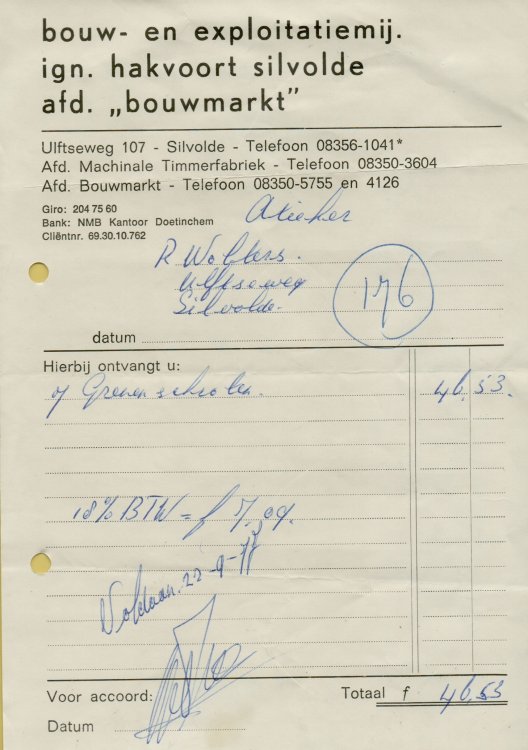 bouw- en exploitatiemij.
ign. hakvoort silvolde
afd. „bouwmarkt”
Ulftseweg 107 - Silvolde - Telefoon 08356-1041*
Afd. Machinale Timmerfabriek - Telefoon 08350-3604
Afd. Bouwmarkt - Telefoon 08350-5755 en 4126
Giro: 204 75 60
Bank: NMB Kantoor Doetinchem
Cliëntnr. 69.30.10.762
Atelier
R Wolters.
Ulftseweg
Silvolde.
176
datum
Hierbij ontvangt u:
Grenen schroten. 46,53.
18% BTW = f 7,09.
Voldaan. 22-9-
Voor accoord:
Totaal f 46,53
Datum